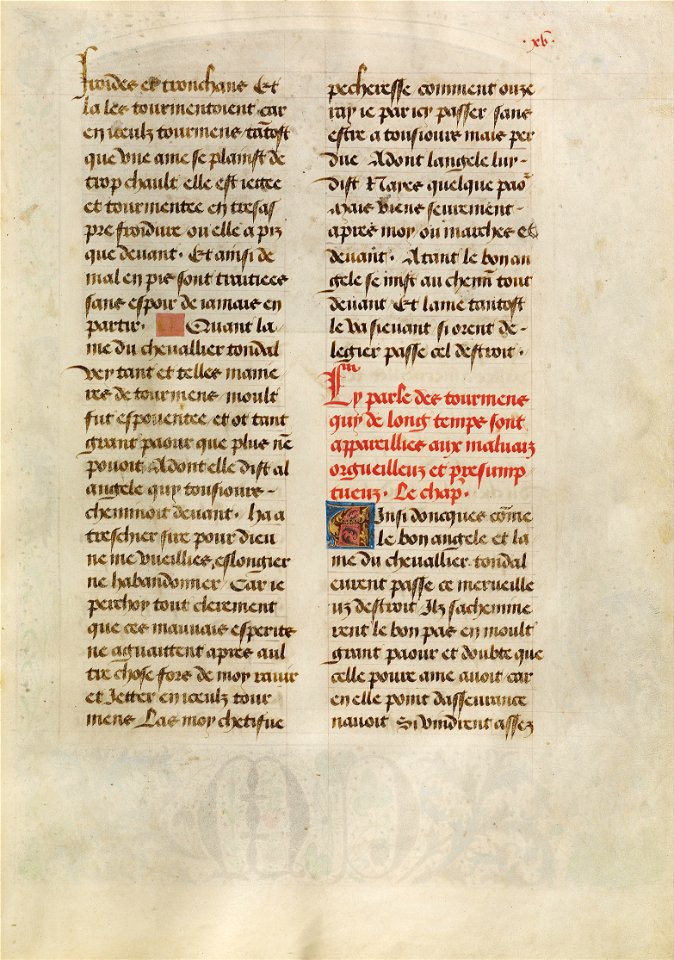 ·xv·
froides et tronchans Et
la les tourmentoient car
en iceulz tourmens tātost
que vne ame se plainst de
trop chault elle est iettee
et tourmentee en tresas
pre froidure ou elle a piz
que deuant · Et ainsi de
mal en pis sont traitiees
sans espoir de iamais en
partir · Quant la
me du cheuallier tondal
vey tant et telles manie
res de tourmens moult
fut espouentee et ot tant
grant paour que plus nē
pouoit Adont elle dist al
angele quy tousiours -
cheminoit deuant · ha a
treschier sire pour dieu
ne me vueillies eslongier
ne habandonner Car ie
perchoy tout clerement
que ces mauuais esperits
ne aguaittent apres aul
tre chose fors de moy rauir
et Jetter en iceulz tour
mens Las moy chetifue
pecheresse comment ouze
ray ie par icy passer sans
estre a tousiours mais per
due Adont langele luy -
dist Nayes quelque paō
Mais viens seurement -
apres moy ou marches et
deuāt · Atant le bon an
gele se mist au chemī tout
deuant Et lame tantost
le va sieuant si orent de -
legier passe cel destroit ·
Cy parle des tourmens
quy de long temps sont
appareillies aux maluaiz
orgueilleuz et presump
tueuz · Le .iiiᵐᵉ chapᵉ ·
Ainsi doncques cōme
le bon angele et la
me du cheuallier tondal
eurent passe ce merueille
uz destroit Ilz sachemine
rent le bon pas en moult
grant paour et doubte que
celle poure ame auoit car
en elle point dasseurance
nauoit Si vindrent assez